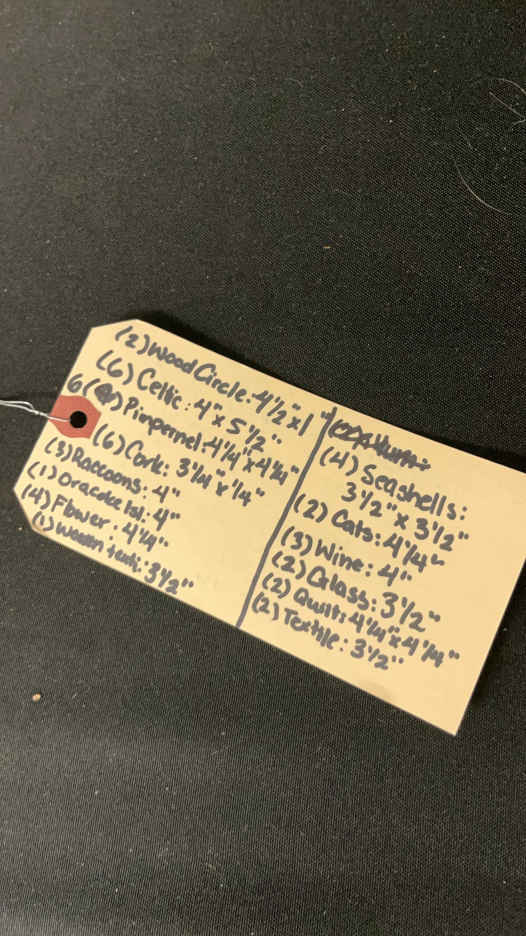 (2) Wood Circle: 4 1/2" x 1"
(6) Celtic: 4" x 5 1/2"
6 Pimpernel: 4 1/4" x 4 1/4"
(6) Cork: 3 1/4" x 1/4"
(3) Raccoons: 4"
(1) Oracoke Isl: 4"
(4) Flower: 4 1/4"
(1) Woven 3 1/2"
(4) Seashells:
3 1/2" x 3 1/2"
(2) Cats: 4 1/4"
(3) Wine: 4"
(2) Glass: 3 1/2"
(2) Quilt: 4 1/4" x 4 1/4"
(2) Textile: 3 1/2"